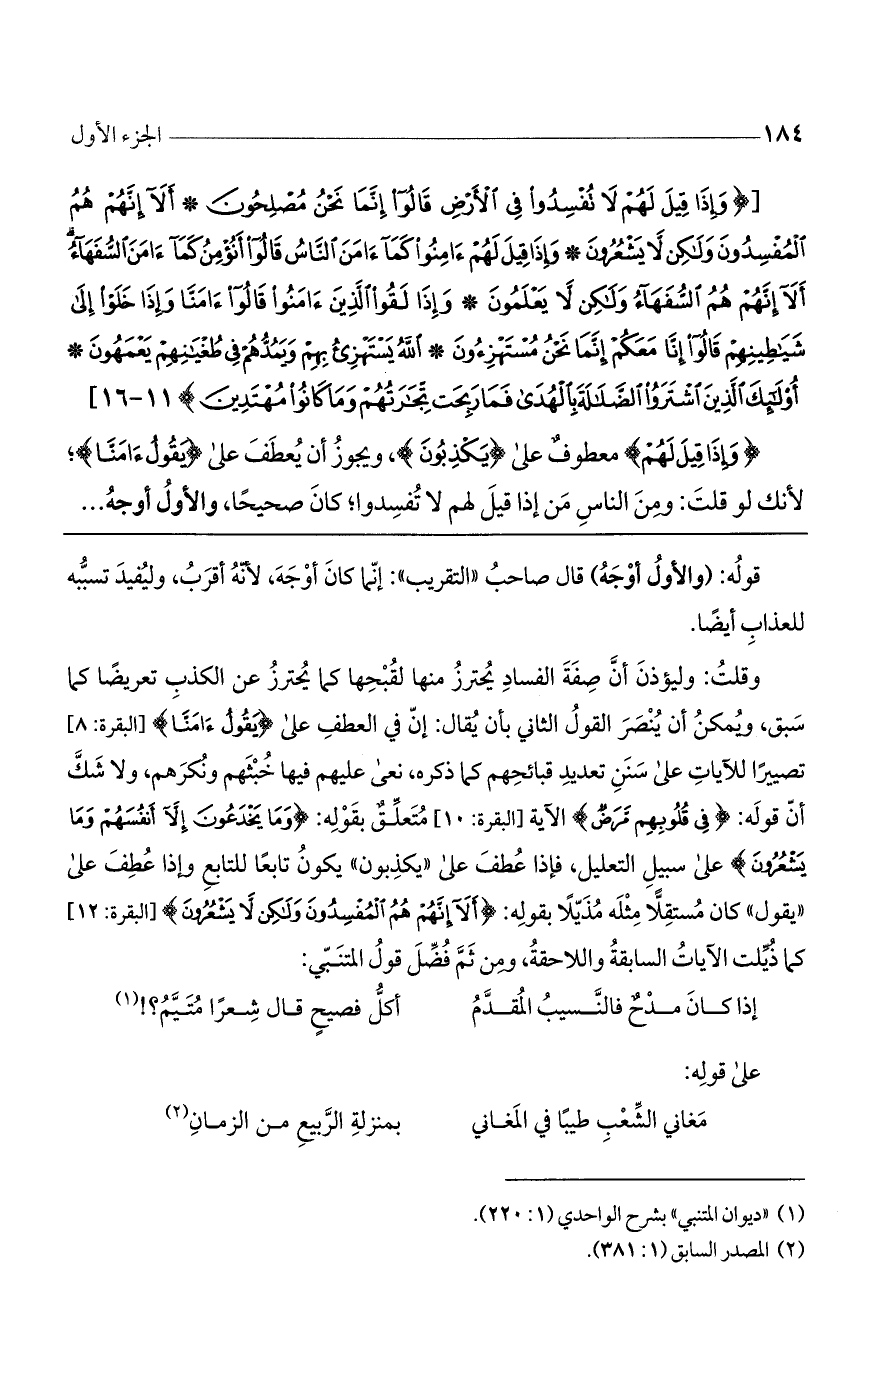 ١٨٤ الجزء الأول
[﴿ وَإِذَا قِيلَ لَهُمْ لَا تُفْسِدُوا۟ فِى ٱلْأَرْضِ قَالُوٓا۟ إِنَّمَا نَحْنُ مُصْلِحُونَ * أَلَآ إِنَّهُمْ هُمُ
ٱلْمُفْسِدُونَ وَلَٰكِن لَّا يَشْعُرُونَ * وَإِذَا قِيلَ لَهُمْ ءَامِنُوا۟ كَمَآ ءَامَنَ ٱلنَّاسُ قَالُوٓا۟ أَنُؤْمِنُ كَمَآ ءَامَنَ ٱلسُّفَهَآءُ ۗ
أَلَآ إِنَّهُمْ هُمُ ٱلسُّفَهَآءُ وَلَٰكِن لَّا يَعْلَمُونَ * وَإِذَا لَقُوا۟ ٱلَّذِينَ ءَامَنُوا۟ قَالُوٓا۟ ءَامَنَّا وَإِذَا خَلَوْا۟ إِلَىٰ
شَيَٰطِينِهِمْ قَالُوٓا۟ إِنَّا مَعَكُمْ إِنَّمَا نَحْنُ مُسْتَهْزِءُونَ * ٱللَّهُ يَسْتَهْزِئُ بِهِمْ وَيَمُدُّهُمْ فِى طُغْيَٰنِهِمْ يَعْمَهُونَ *
أُو۟لَٰٓئِكَ ٱلَّذِينَ ٱشْتَرَوُا۟ ٱلضَّلَٰلَةَ بِٱلْهُدَىٰ فَمَا رَبِحَت تِّجَٰرَتُهُمْ وَمَا كَانُوا۟ مُهْتَدِينَ ﴾ ١١-١٦]
﴿ وَإِذَا قِيلَ لَهُمْ﴾ معطوفٌ علىٰ ﴿يَكْذِبُونَ ﴾، ويجوزُ أن يُعطَفَ علىٰ ﴿يَقُولُ ءَامَنَّا﴾؛
لأنك لو قلتَ: ومِنَ الناسِ مَن إذا قيلَ لهم لا تُفسِدوا؛ كانَ صحيحًا، والأولُ أوجهُ...
قولُه: (والأولُ أوْجَهُ) قال صاحبُ «التقريب»: إنّما كانَ أوْجَهَ، لأنّهُ أقرَبُ، وليُفيدَ تسبُّبه
للعذابِ أيضًا.
وقلتُ: وليؤذنَ أنَّ صِفَةَ الفسادِ يُحترزُ منها لقُبْحِها كما يُحترزُ عن الكذبِ تعريضًا كما
سَبق، ويُمكنُ أن يُنْصَرَ القولُ الثاني بأن يُقال: إنّ في العطفِ علىٰ ﴿يَقُولُ ءَامَنَّا﴾ [البقرة: ٨]
تصييرًا للآياتِ علىٰ سَنَنِ تعديدِ قبائحِهم كما ذكره، نعىٰ عليهم فيها خُبْثَهم ونُكرَهم، ولا شكَّ
أنّ قولَه: ﴿ فِى قُلُوبِهِم مَّرَضٌ ﴾ الآية [البقرة: ١٠] مُتَعلِّقٌ بقَوْلِه: ﴿وَمَا يَخْدَعُونَ إِلَّآ أَنفُسَهُمْ وَمَا
يَشْعُرُونَ ﴾ علىٰ سبيلِ التعليل، فإذا عُطفَ علىٰ «يكذِبون» يكونُ تابعًا للتابعِ وإذا عُطِفَ علىٰ
«يقول» كان مُستقِلًّا مِثْلَه مُذَيّلًا بقولِه: ﴿أَلَآ إِنَّهُمْ هُمُ ٱلْمُفْسِدُونَ وَلَٰكِن لَّا يَشْعُرُونَ ﴾ [البقرة: ١٢]
كما ذُيِّلت الآياتُ السابقةُ واللاحقةُ، ومِن ثَمَّ فُضِّلَ قولُ المتنَبّي:
إذا كـــان مـــدْحٌ فالنَّـــسيبُ المُقـــدَّمُ أكلُّ فصيحٍ قـال شِـعرًا مُتَيَّمُ؟!(١)
علىٰ قولِه:
مَغاني الشِّعْبِ طيبًا في المَغـاني بمنزلةِ الرَّبيعِ مـن الزمـانِ(٢)
(١) «ديوان المتنبي» بشرح الواحدي (١: ٢٢٠).
(٢) المصدر السابق (١: ٣٨١).